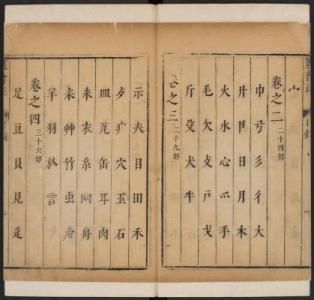 卷之二 二十四部
巾 彡 彳 大
日 月 木
火 水 心 手
毛 欠 支 戶 戈
斤 殳 犬 牛
卷之三 二十九部
示 目 田 禾
歹 疒 穴 玉 石
皿 瓦 缶 耳 肉
米 衣 系 网 舟
耒 艸 竹 虫
羊 羽 言
卷之四 三十六部
足 豆 貝 見 辵